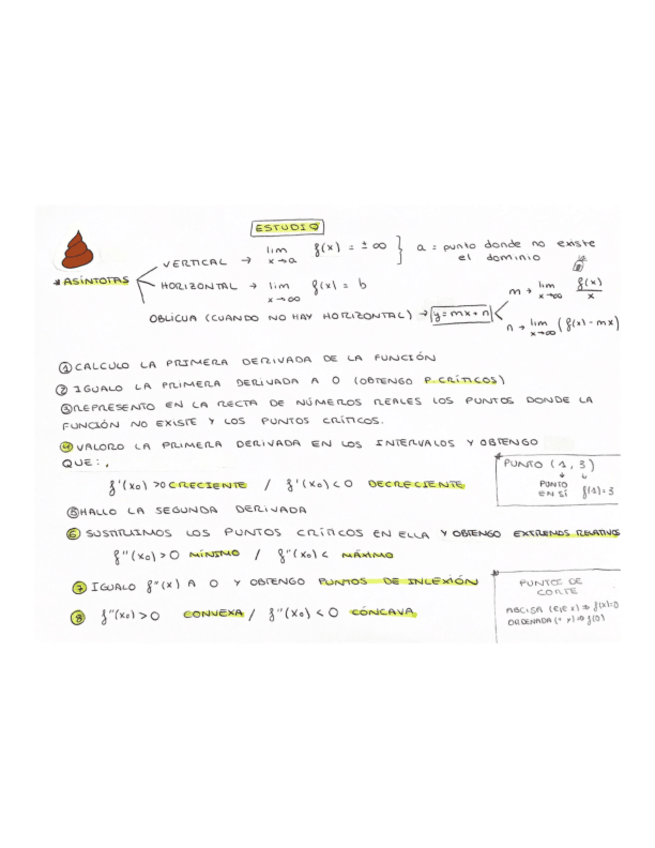 ESTUDIO
* ASÍNTOTAS
VERTICAL → lim x→a f(x) = ± ∞ } a = punto donde no existe el dominio
HORIZONTAL → lim x→∞ f(x) = b
OBLICUA (CUANDO NO HAY HORIZONTAL) → y = mx + n
m → lim x→∞ f(x)/x
n → lim x→∞ (f(x) - mx)
① CALCULO LA PRIMERA DERIVADA DE LA FUNCIÓN
② IGUALO LA PRIMERA DERIVADA A 0 (OBTENGO P. CRÍTICOS)
③ REPRESENTO EN LA RECTA DE NÚMEROS REALES LOS PUNTOS DONDE LA
FUNCIÓN NO EXISTE Y LOS PUNTOS CRÍTICOS.
④ VALORO LA PRIMERA DERIVADA EN LOS INTERVALOS Y OBTENGO
QUE:,
f'(x₀) >0 CRECIENTE / f'(x₀) < 0 DECRECIENTE
PUNTO (1, 3)
PUNTO EN SÍ f(1)=3
⑤ HALLO LA SEGUNDA DERIVADA
⑥ SUSTITUIMOS LOS PUNTOS CRÍTICOS EN ELLA Y OBTENGO EXTREMOS RELATIVOS
f''(x₀) > 0 MÍNIMO / f''(x₀) < MÁXIMO
⑦ IGUALO f''(x) A 0 Y OBTENGO PUNTOS DE INLEXIÓN
⑧ f''(x₀) > 0 CONVEXA / f''(x₀) < 0 CÓNCAVA
PUNTOS DE
CORTE
ABCISA (eje x) ⇒ f(x)=0
ORDENADA (" y) ⇒ f(0)